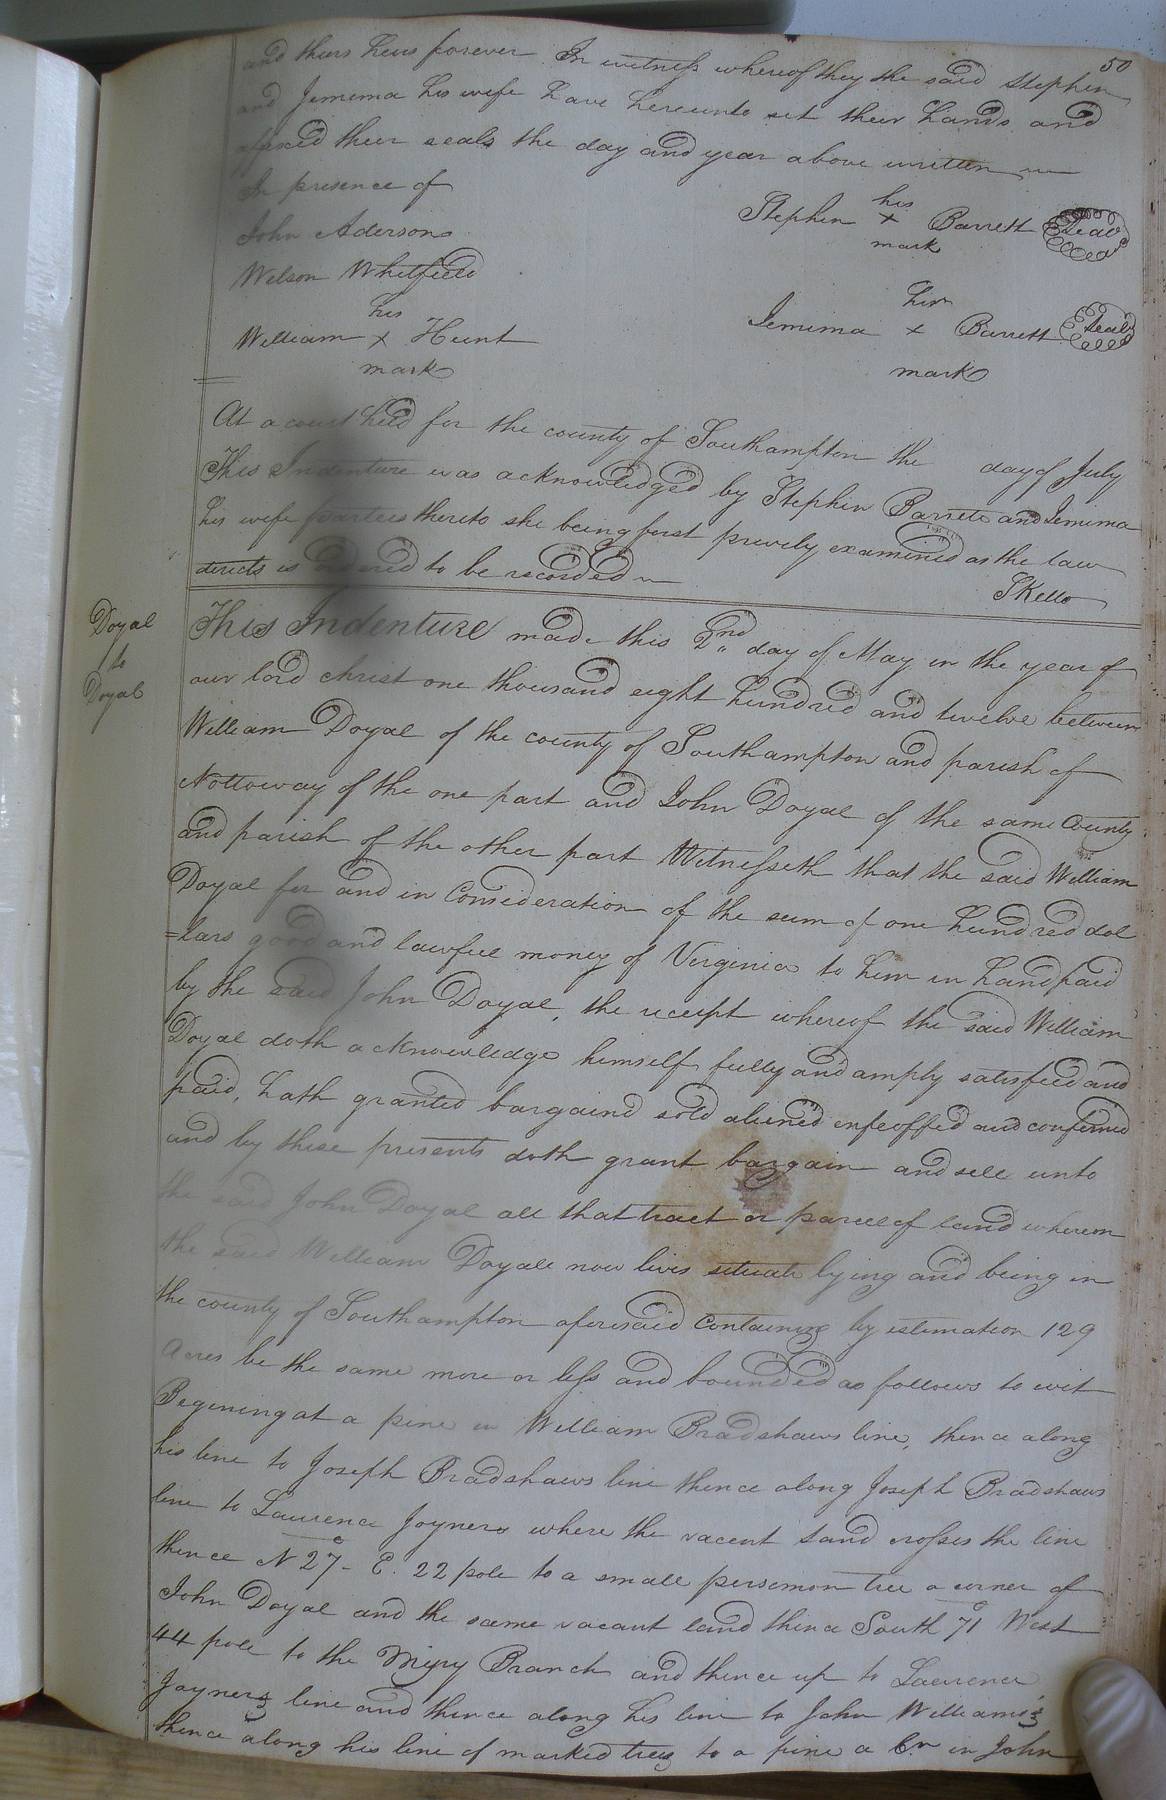 50
and theirs heirs forever In witness whereof they the said Stephen
and Jemima his wife have hereunto set their hands and
afixed their seals the day and year above written
In presence of
John Adersons
Welson Whitfield
his
William x Hunt
mark
his
Stephen x Barrett Seal
mark
her
Jemima x Barrett Seal
mark
At a court held for the county of Southampton the day of July
This Indenture was acknowledged by Stephen Barrett and Jemima
his wife parties thereto she being first privily examined as the law
directs is ordered to be recorded
SKello
Doyal
to
Doyal
This Indenture made this 2nd day of May in the year of
our lord christ one thousand eight hundred and twelve between
William Doyal of the county of Southampton and parish of
Nottoway of the one part and John Doyal of the same County
and parish of the other part Witnesseth that the said William
Doyal for and in Consideration of the sum of one hundred dol
=lars good and lawfull money of Virginia to him in hand paid
by the said John Doyal, the receipt whereof the said William
Doyal doth acknowledge himself fully and amply satisfied and
paid, hath granted bargaind sold aliened enfeoffed and confirmed
and by these presents doth grant bargain and sell unto
the said John Doyal all that tract or parcel of land wherein
the said William Doyall now lives situate lying and being in
the county of Southampton aforesaid Containing by estimation 129
Acres be the same more or less and bounded as follows to wit
Begining at a pine in William Bradshaws line, thence along
his line to Joseph Bradshaws line thence along Joseph Bradshaws
line to Laurence Joyners where the vacent land crosses the line
thence N 27° E. 22 pole to a small persemon tree a corner of
John Doyal and the same vacant land thence South 71° West
44 pole to the Miry Branch and thence up to Laurence
Joyners line and thence along his line to John Williams's
thence along his line of marked trees to a pine a Cr in John